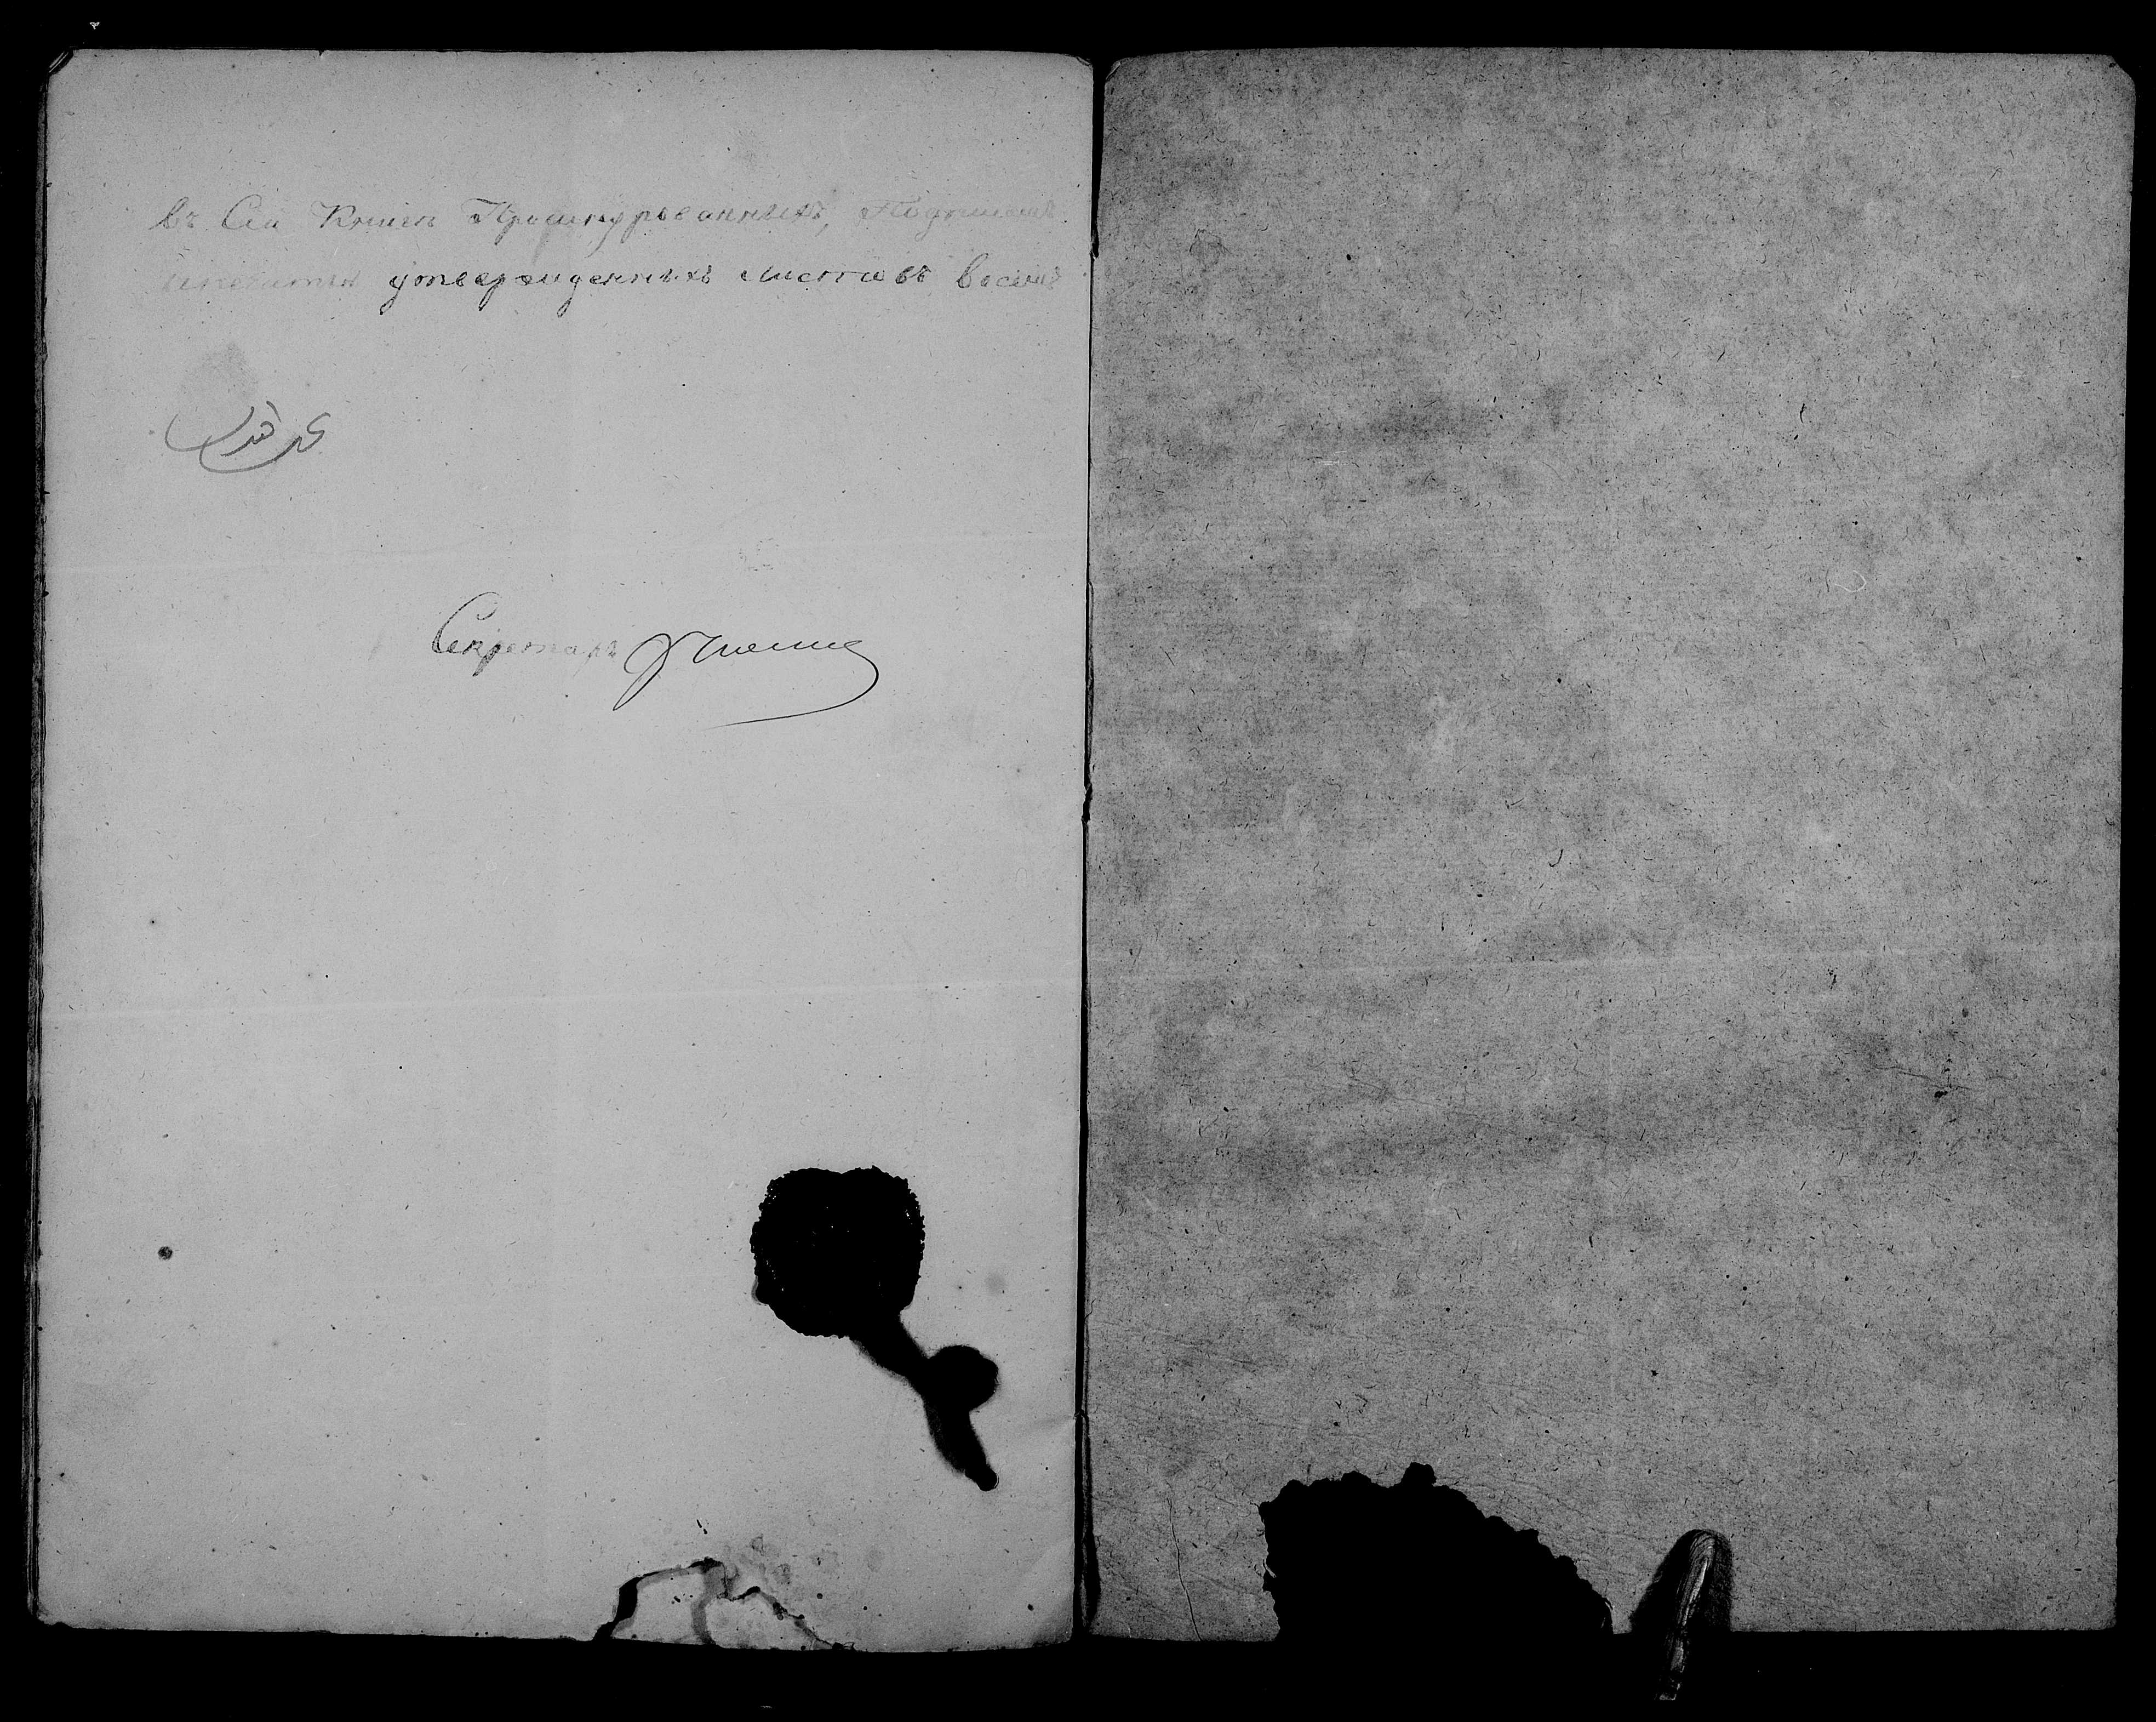 въ Сей Книге Прошнурованныхъ, Подписью
и печатью утвержденныхъ листовъ восемь
Секретарь